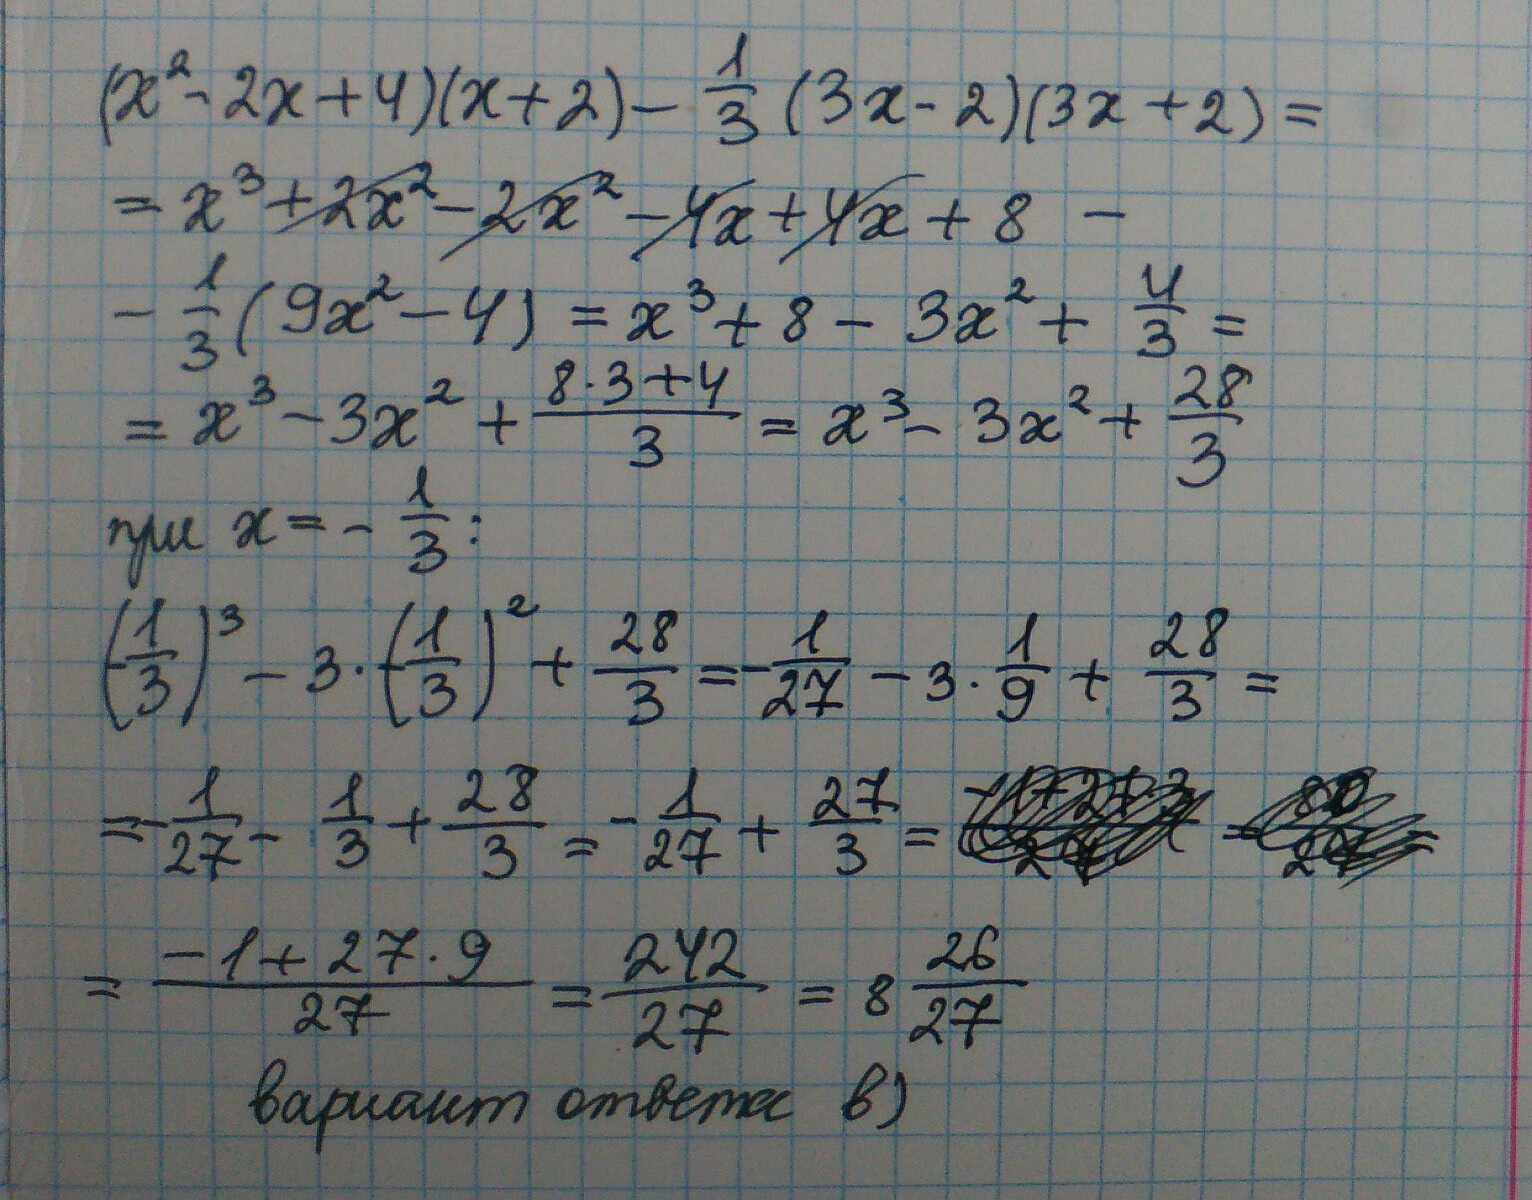 (x² - 2x + 4)(x + 2) - 1/3 (3x - 2)(3x + 2) =
= x³ + 2x² - 2x² - 4x + 4x + 8 -
- 1/3 (9x² - 4) = x³ + 8 - 3x² + 4/3 =
= x³ - 3x² + (8·3+4)/3 = x³ - 3x² + 28/3
при x = - 1/3 :
(-1/3)³ - 3·(-1/3)² + 28/3 = -1/27 - 3·1/9 + 28/3 =
= -1/27 - 1/3 + 28/3 = -1/27 + 27/3 =
= (-1 + 27·9)/27 = 242/27 = 8 26/27
вариант ответа в)